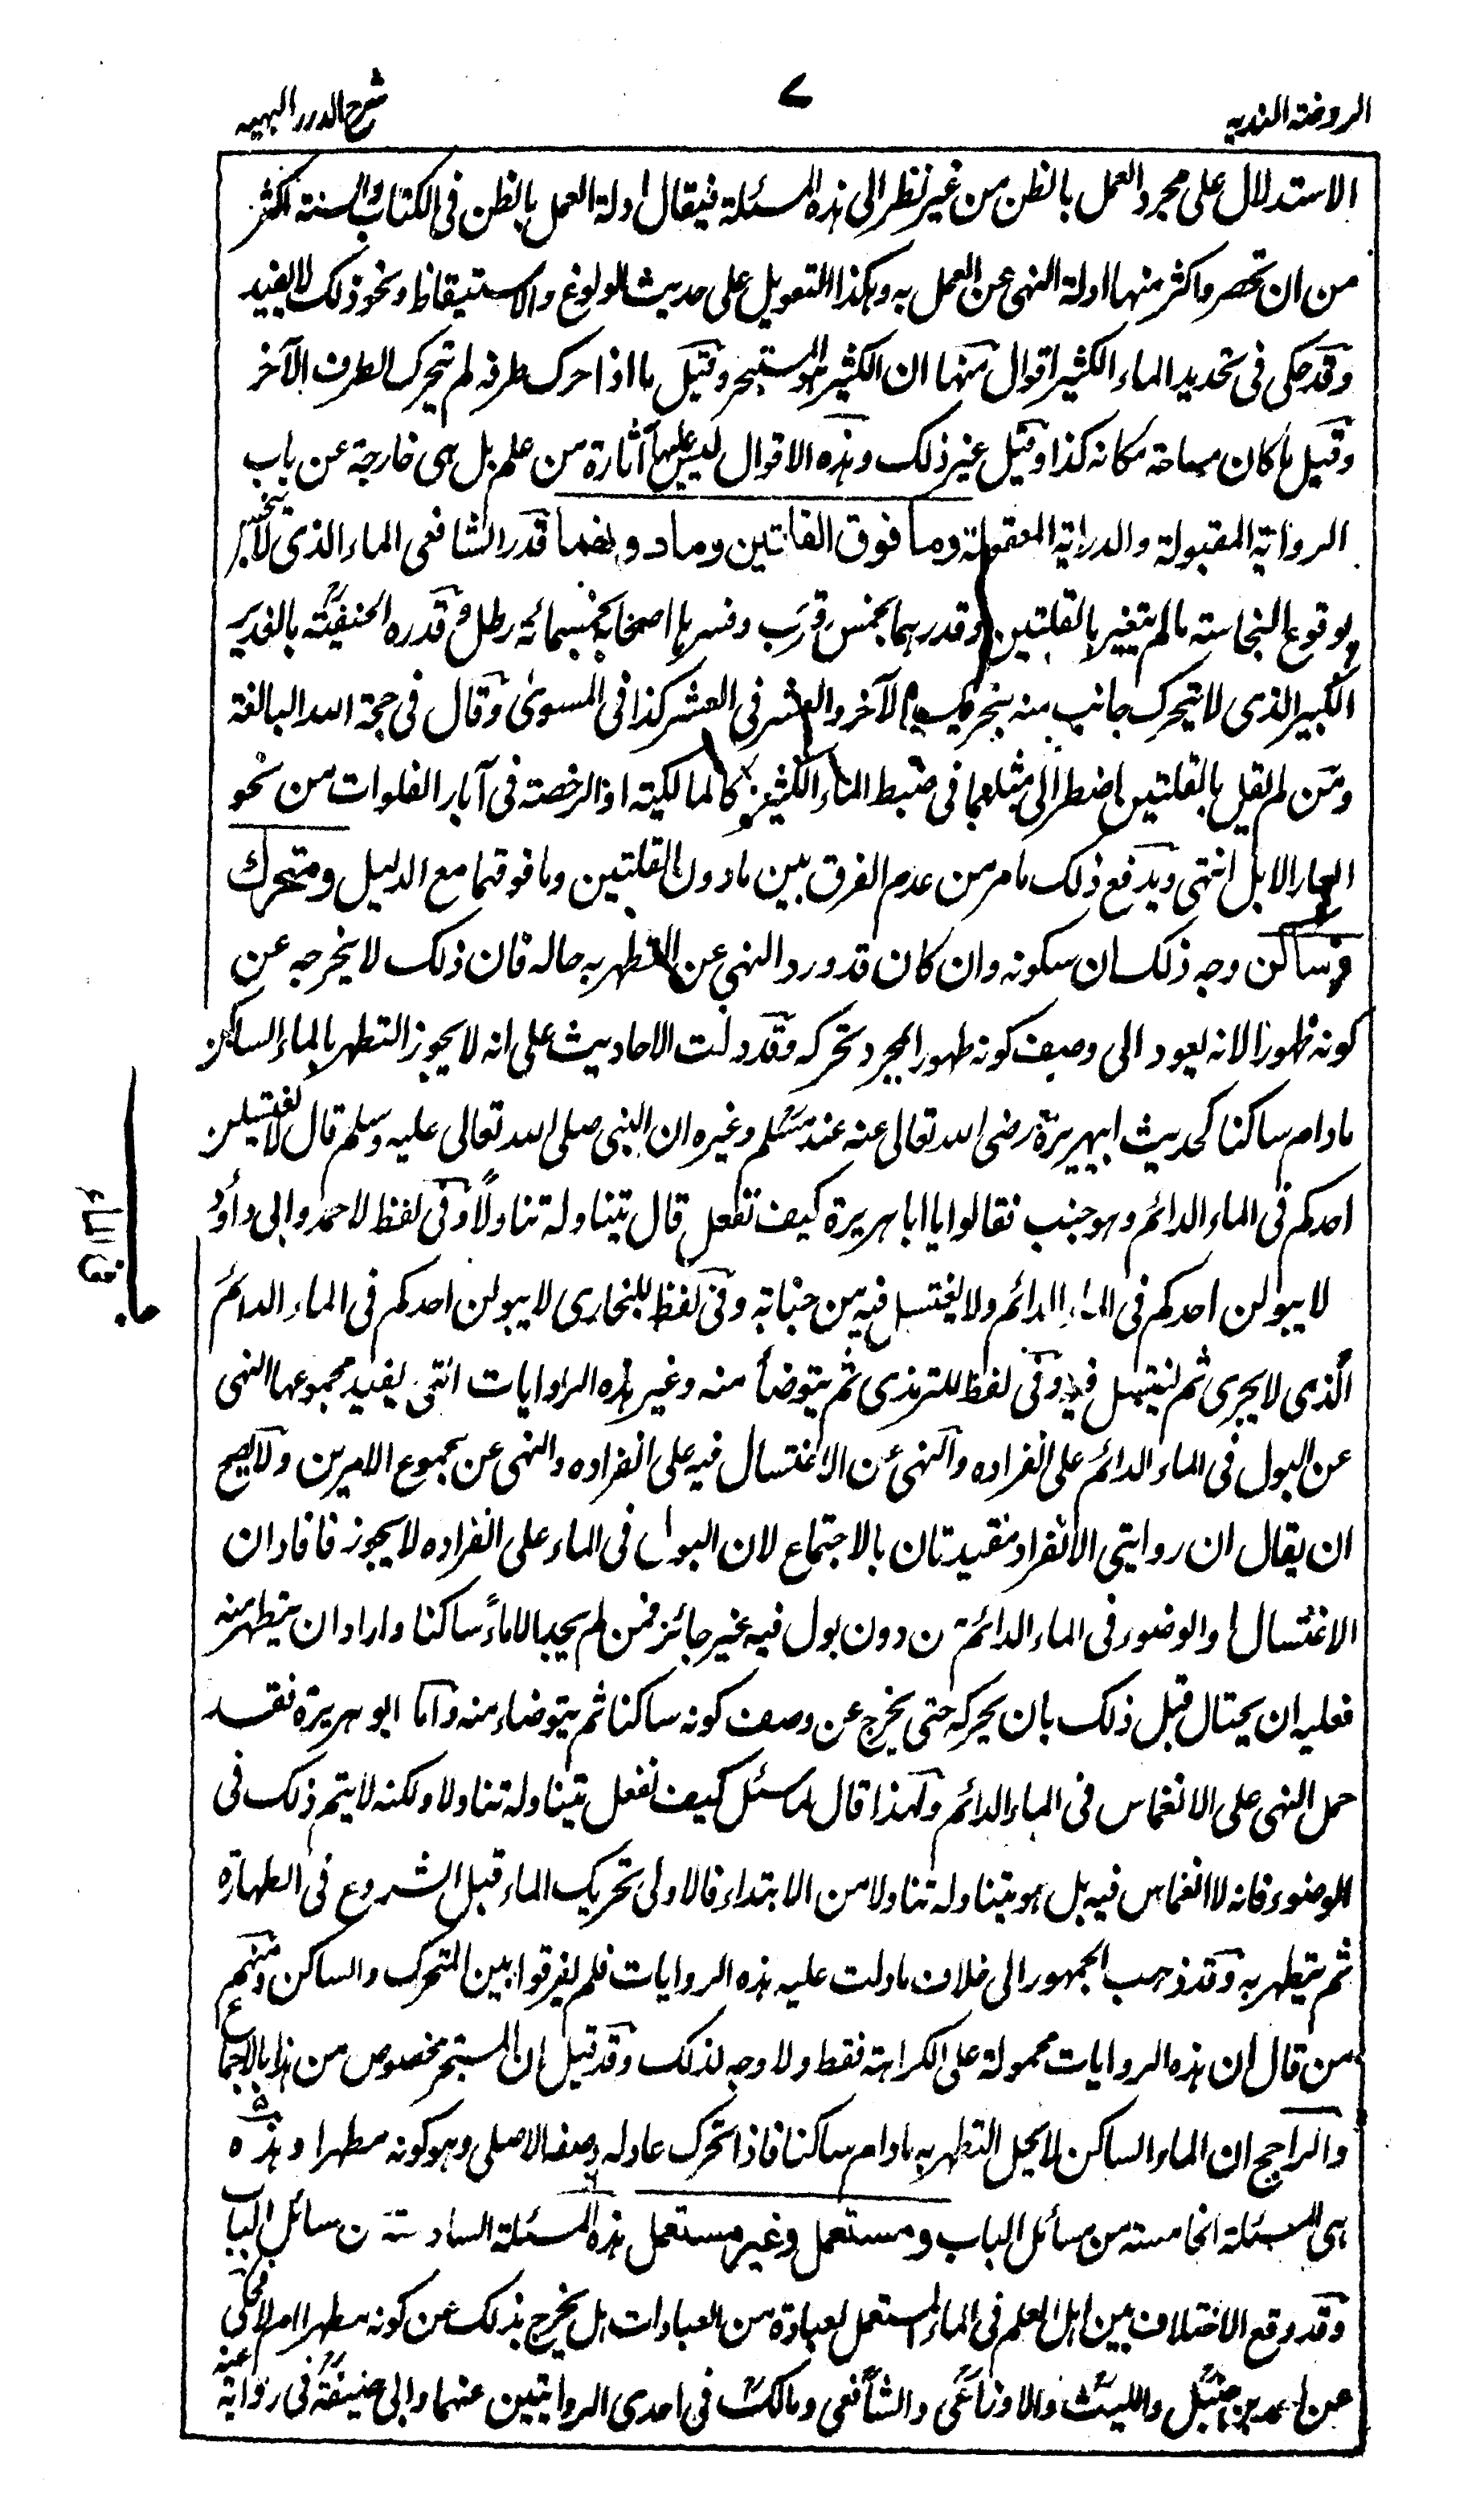 الروضة الندية
٧
شرح الدرر البهية
الاستدلال على مجرد العمل بالظن من غير نظر الى هذه المسئلة فيقال ادلة العمل بالظن فى الكتاب والسنة اكثر
من ان تحصر واكثر منها ادلة النهى عن العمل به وهكذا التعويل على حديث الولوغ والاستيقاظ ونحو ذلك لا يفيد
وقد حكى فى تحديد الماء الكثير اقوال منها ان الكثير هو المستبحر وقيل ما اذا حرك طرفه لم يتحرك الطرف الآخر
وقيل ما كان مساحة مكانه كذا وقيل غير ذلك وهذه الاقوال ليس عليها آثارة من علم بل هى خارجة عن باب
الرواية المقبولة والدراية المعقولة وما فوق القلتين وما دونهما قدر الشافعى الماء الذى لا ينجس
بوقوع النجاسة ما لم يتغير بالقلتين وقدرهما بخمس قرب وفسرها اصحابه بخمسمائة رطل وقدره الحنفية بالغدير
الكبير الذى لا يتحرك جانب منه بتحريك الآخر والعشر فى العشر كذا فى المسوى وقال فى حجة الله البالغة
ومن لم يقل بالقلتين اضطر الى مثلهما فى ضبط الماء الكثير كالمالكية او الرخصة فى آبار الفلوات من نحو
ابعار الابل انتهى ويدفع ذلك ما مر من عدم الفرق بين ما دون القلتين وما فوقهما مع الدليل ومتحرك
وساكن وجه ذلك ان سكونه وان كان قد ورد النهى عن التطهر به حاله فان ذلك لا يخرجه عن
كونه طهورا لانه يعود الى وصف كونه طهورا بمجرد تحركه وقد دلت الاحاديث على انه لا يجوز التطهر بالماء الساكن
ما دام ساكنا كحديث ابيهريرة رضى الله تعالى عنه عند مسلم وغيره ان النبى صلى الله تعالى عليه وسلم قال لا يغتسلن
احدكم فى الماء الدائم وهو جنب فقالوا يا ابا هريرة كيف نفعل قال يتناوله تناولاً وفى لفظ لاحمد وابى داؤد
لا يبولن احدكم فى الماء الدائم ولا يغتسل فيه من جنابة وفى لفظ للبخارى لا يبولن احدكم فى الماء الدائم
الذى لا يجرى ثم يغتسل فيه وفى لفظ للترمذى ثم يتوضأ منه وغير هذه الروايات التى يفيد مجموعها النهى
عن البول فى الماء الدائم على انفراده والنهى عن الاغتسال فيه على انفراده والنهى عن مجموع الامرين ولا يصح
ان يقال ان روايتى الانفراد مقيدتان بالاجتماع لان البول فى الماء على انفراده لا يجوز فافاد ان
الاغتسال والوضوء فى الماء الدائم من دون بول فيه غير جائز فمن لم يجد الا ماءً ساكنا واراد ان يتطهر منه
فعليه ان يحتال قبل ذلك بان يحركه حتى يخرج عن وصف كونه ساكنا ثم يتوضاء منه واما ابو هريرة فقد
حمل النهى على الانغماس فى الماء الدائم ولهذا قال لما سئل كيف نفعل يتناوله تناولا ولكنه لا يتم ذلك فى
الوضوء فانه لا انغماس فيه بل هو يتناوله تناولا من الابتداء فالاولى تحريك الماء قبل الشروع فى الطهارة
ثم يتطهر به وقد ذهب الجمهور الى خلاف ما دلت عليه هذه الروايات فلم يفرقوا بين المتحرك والساكن ومنهم
من قال ان هذه الروايات محمولة على الكراهة فقط ولا وجه لذلك وقد قيل ان المستبحر مخصوص من هذا بالاجماع
والراجح ان الماء الساكن لا يحل التطهر به ما دام ساكنا فاذا تحرك عاد له وصفه الاصلى وهو كونه مطهرا وهذه
هى المسئلة الخامسة من مسائل الباب ومستعمل وغير مستعمل هذه المسئلة السادسة من مسائل الباب
وقد وقع الاختلاف بين اهل العلم فى الماء المستعمل لعبادة من العبادات هل يخرج بذلك عن كونه مطهرا ام لا فحكى
عن احمد بن حنبل والليث والاوزاعى والشافعى ومالك فى احدى الروايتين عنهما وابى حنيفة فى رواية عنه